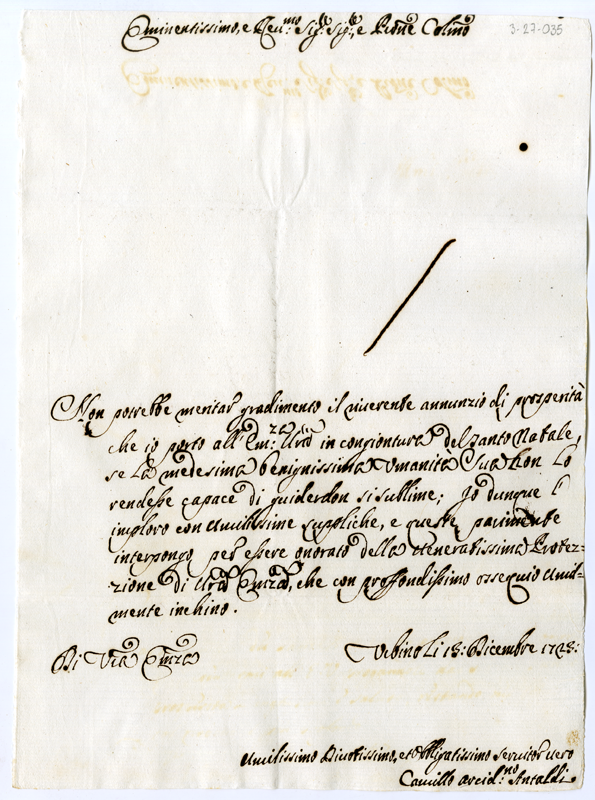 3-27-035
Eminentissimo, e Reu:mo Sig:re Sig:re, e Prone Colmo
Non potrebbe meritar gradimento il riverente annunzio di prosperità
che io porto all'Em:za Vra in congiontura del santo Natale,
se la medesima benignissima Umanità Sua non lo
rendesse capace di guiderdon si sublime; Io dunque l'
imploro con umilissime suppliche, e queste parimente
interpongo per essere onorato della veneratissima Protez-
zione di Vra Emza, che con profondissimo ossequio umil-
mente inchino.
Di Vra Emza
Urbino li 18: Dicembre 1728:
Umilissimo Divotissimo, et Obbligatissimo Servitor vero
Camillo arcid:no Antaldi